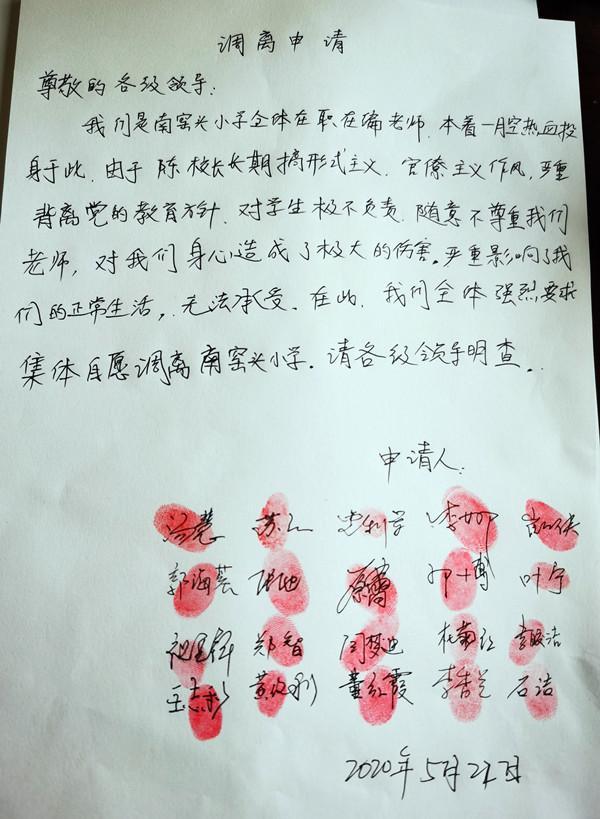 调离申请
尊敬的各级领导:
我们是南窑头小学全体在职在编老师.本着一腔热血投
身于此.由于陈校长长期搞形式主义、官僚主义作风,严重
背离党的教育方针.对学生极不负责.随意不尊重我们
老师,对我们身心造成了极大的伤害。严重影响了我
们的正常生活,.无法承受.在此.我们全体强烈要求
集体自愿调离南窑头小学.请各级领导明查..
申请人:
苏红 李娜
郭海艳 原雷 叶宁
郑智 闫梦迪 杜菊红
王志彩 董红霞 石洁
2020年5月21日